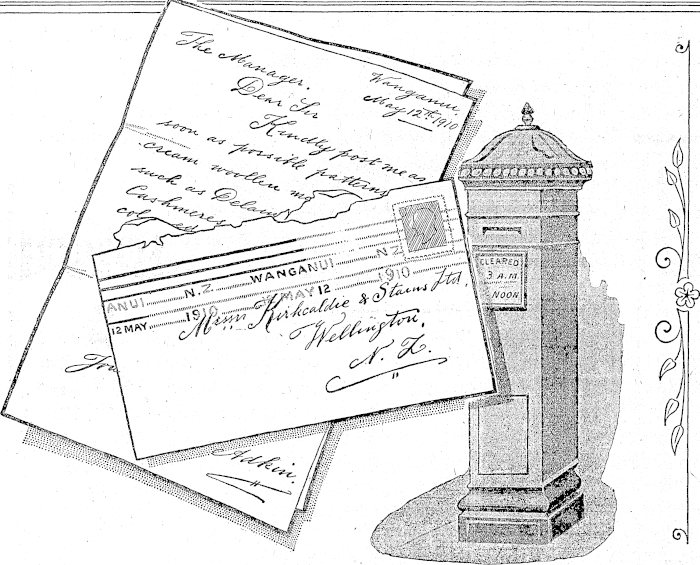 The Manager.
Wanganui,
May 12th 1910
Dear Sir
Kindly post me as
soon as possible patterns
cream woollen
such as
Cashmeres
WANGANUI N.Z.
ANUI N.Z. MAY 12 1910
12 MAY 1910
Messrs Kirkcaldie & Stains Ltd,
Wellington.
N. Z.
Adkin.
CLEARED
3 A.M
NOON